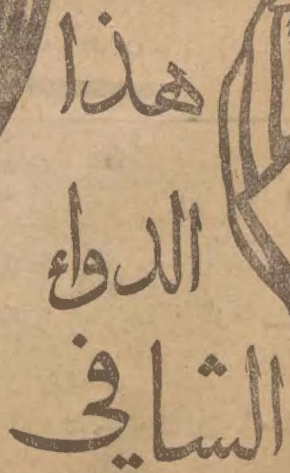 هذا
الدواء
الشافي